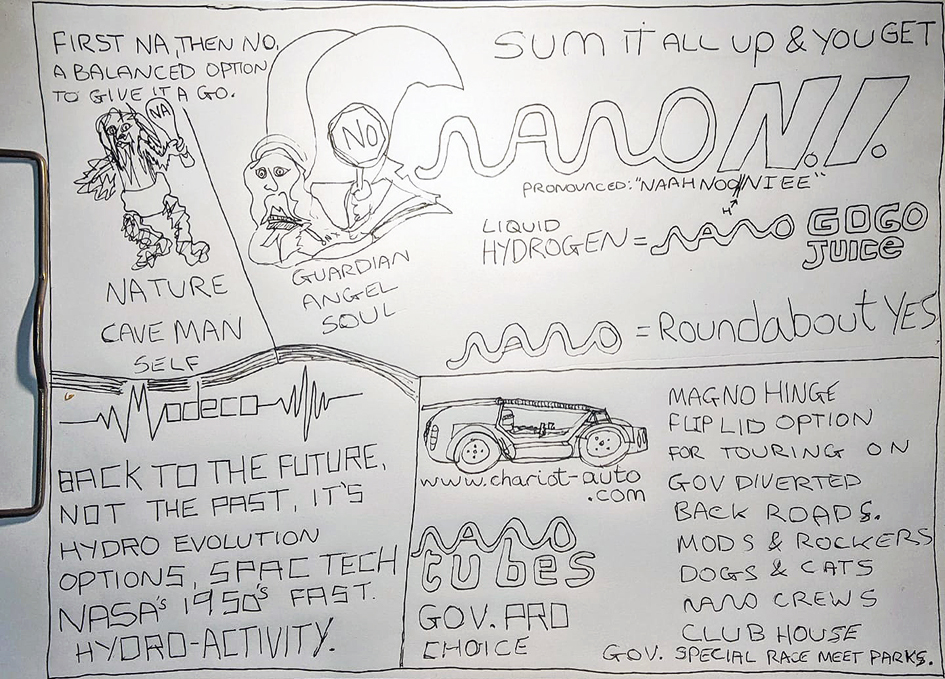 FIRST NA, THEN NO,
A BALANCED OPTION
TO GIVE IT A GO.
NA
NATURE
CAVE MAN
SELF
NO
GUARDIAN
ANGEL
SOUL
SUM IT ALL UP & YOU GET
NANO N.I.
PRONOUNCED: "NAAHNOO/NIEE"
H
LIQUID
HYDROGEN = NANO GOGO
JUICE
NANO = Roundabout YES
Modeco
BACK TO THE FUTURE,
NOT THE PAST, IT'S
HYDRO EVOLUTION
OPTIONS, SPAC TECH
NASA'S 1950'S FAST.
HYDRO-ACTIVITY.
www.chariot-auto
.com
NANO
CUBES
GOV. PRO
CHOICE
MAGNO HINGE
FLIP LID OPTION
FOR TOURING ON
GOV DIVERTED
BACK ROADS.
MODS & ROCKERS
DOGS & CATS
NANO CREWS
CLUB HOUSE
GOV. SPECIAL RACE MEET PARKS.